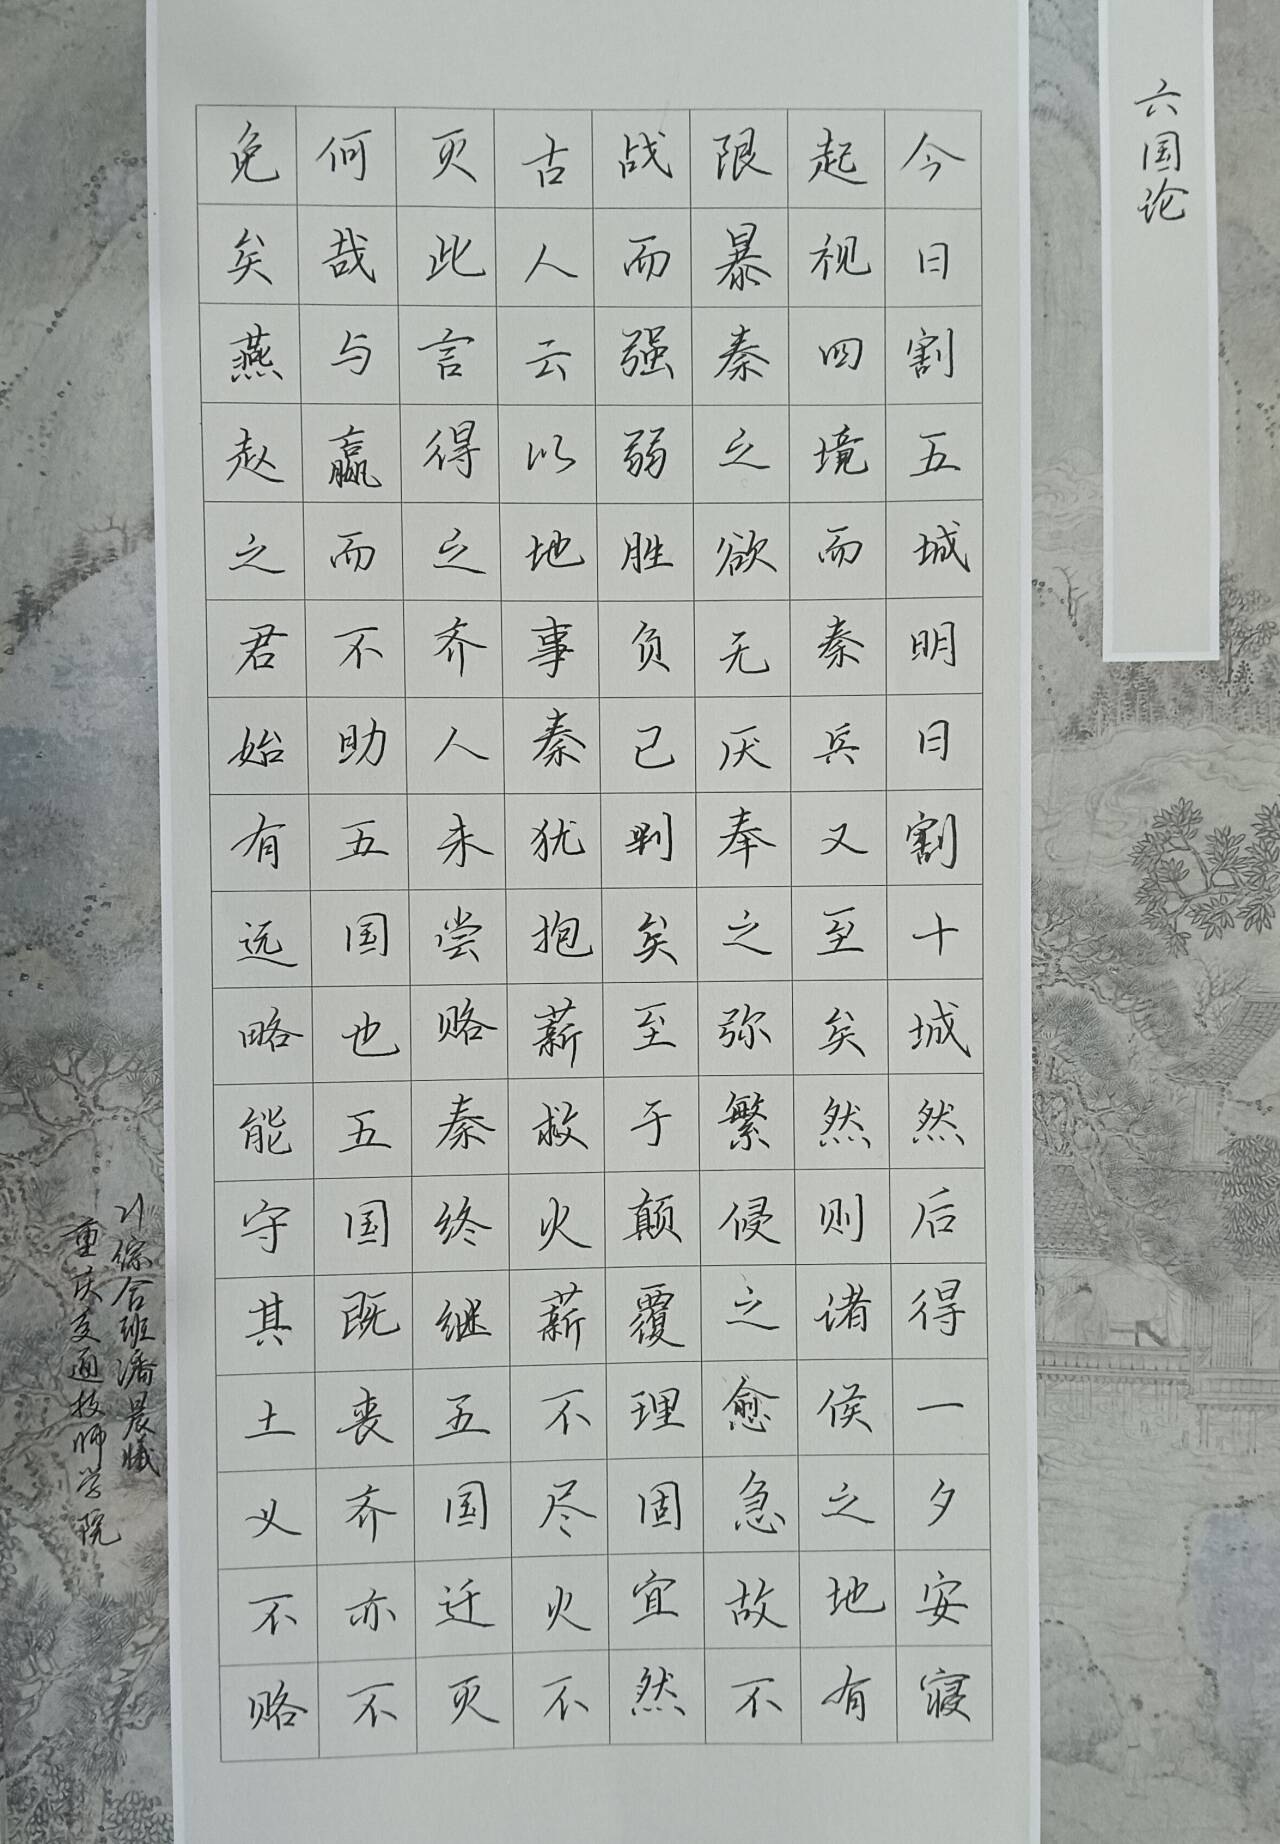 六国论
今日割五城明日割十城然后得一夕安寝
起视四境而秦兵又至矣然则诸侯之地有
限暴秦之欲无厌奉之弥繁侵之愈急故不
战而强弱胜负已判矣至于颠覆理固宜然
古人云以地事秦犹抱薪救火薪不尽火不
灭此言得之齐人未尝赂秦终继五国迁灭
何哉与嬴而不助五国也五国既丧齐亦不
免矣燕赵之君始有远略能守其土义不赂
21综合班潘晨曦
重庆交通技师学院